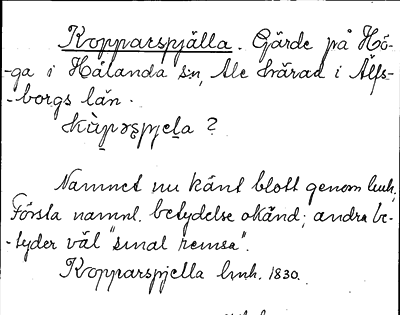 Kopparspjälla. Gärde på Hö-
-ga i Hålanda sn, Ale härad i Älfs-
-borgs län.
kùpəʂpjeḷa ?
Namnet nu känt blott genom lmh.
Första namnl. betydelse okänd; andra be-
-tyder väl "smal remsa".
Kopparspjella lmh. 1830.